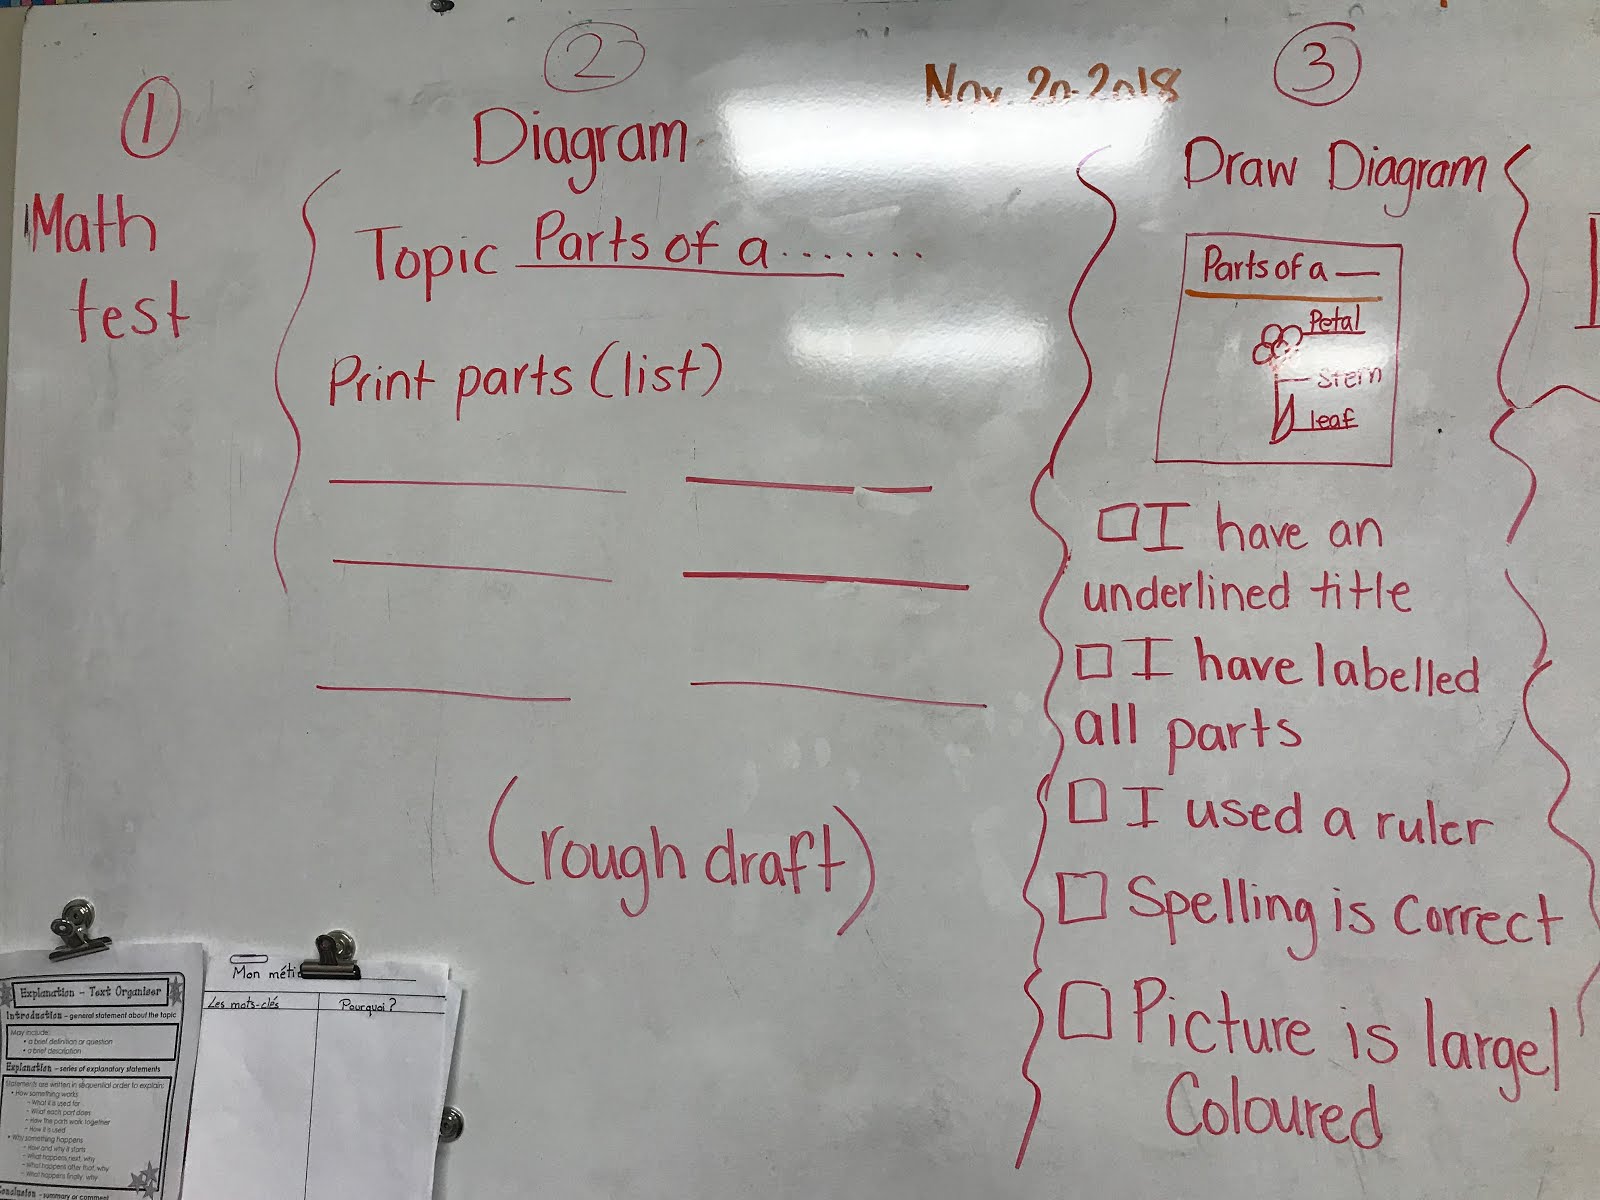 Nov. 20 2018
①
Math
test
②
Diagram
Topic Parts of a.......
Print parts (list)
(rough draft)
③
Draw Diagram
Parts of a
Petal
Stem
leaf
I have an
underlined title
I have labelled
all parts
I used a ruler
Spelling is correct
Picture is large/
Coloured
Explanation - Text Organiser
Introduction - general statement about the topic
May include:
• a brief definition or question
• a brief description
Explanation - series of explanatory statements
Statements are written in sequential order to explain:
• How something works
- What it is used for
- What each part does
- How the parts work together
- How it is used
• Why something happens
- How and why it starts
- What happens next, why
- What happens after that, why
- What happens finally, why
Conclusion - summary or comment
Mon
Les mots-clés
Pourquoi?